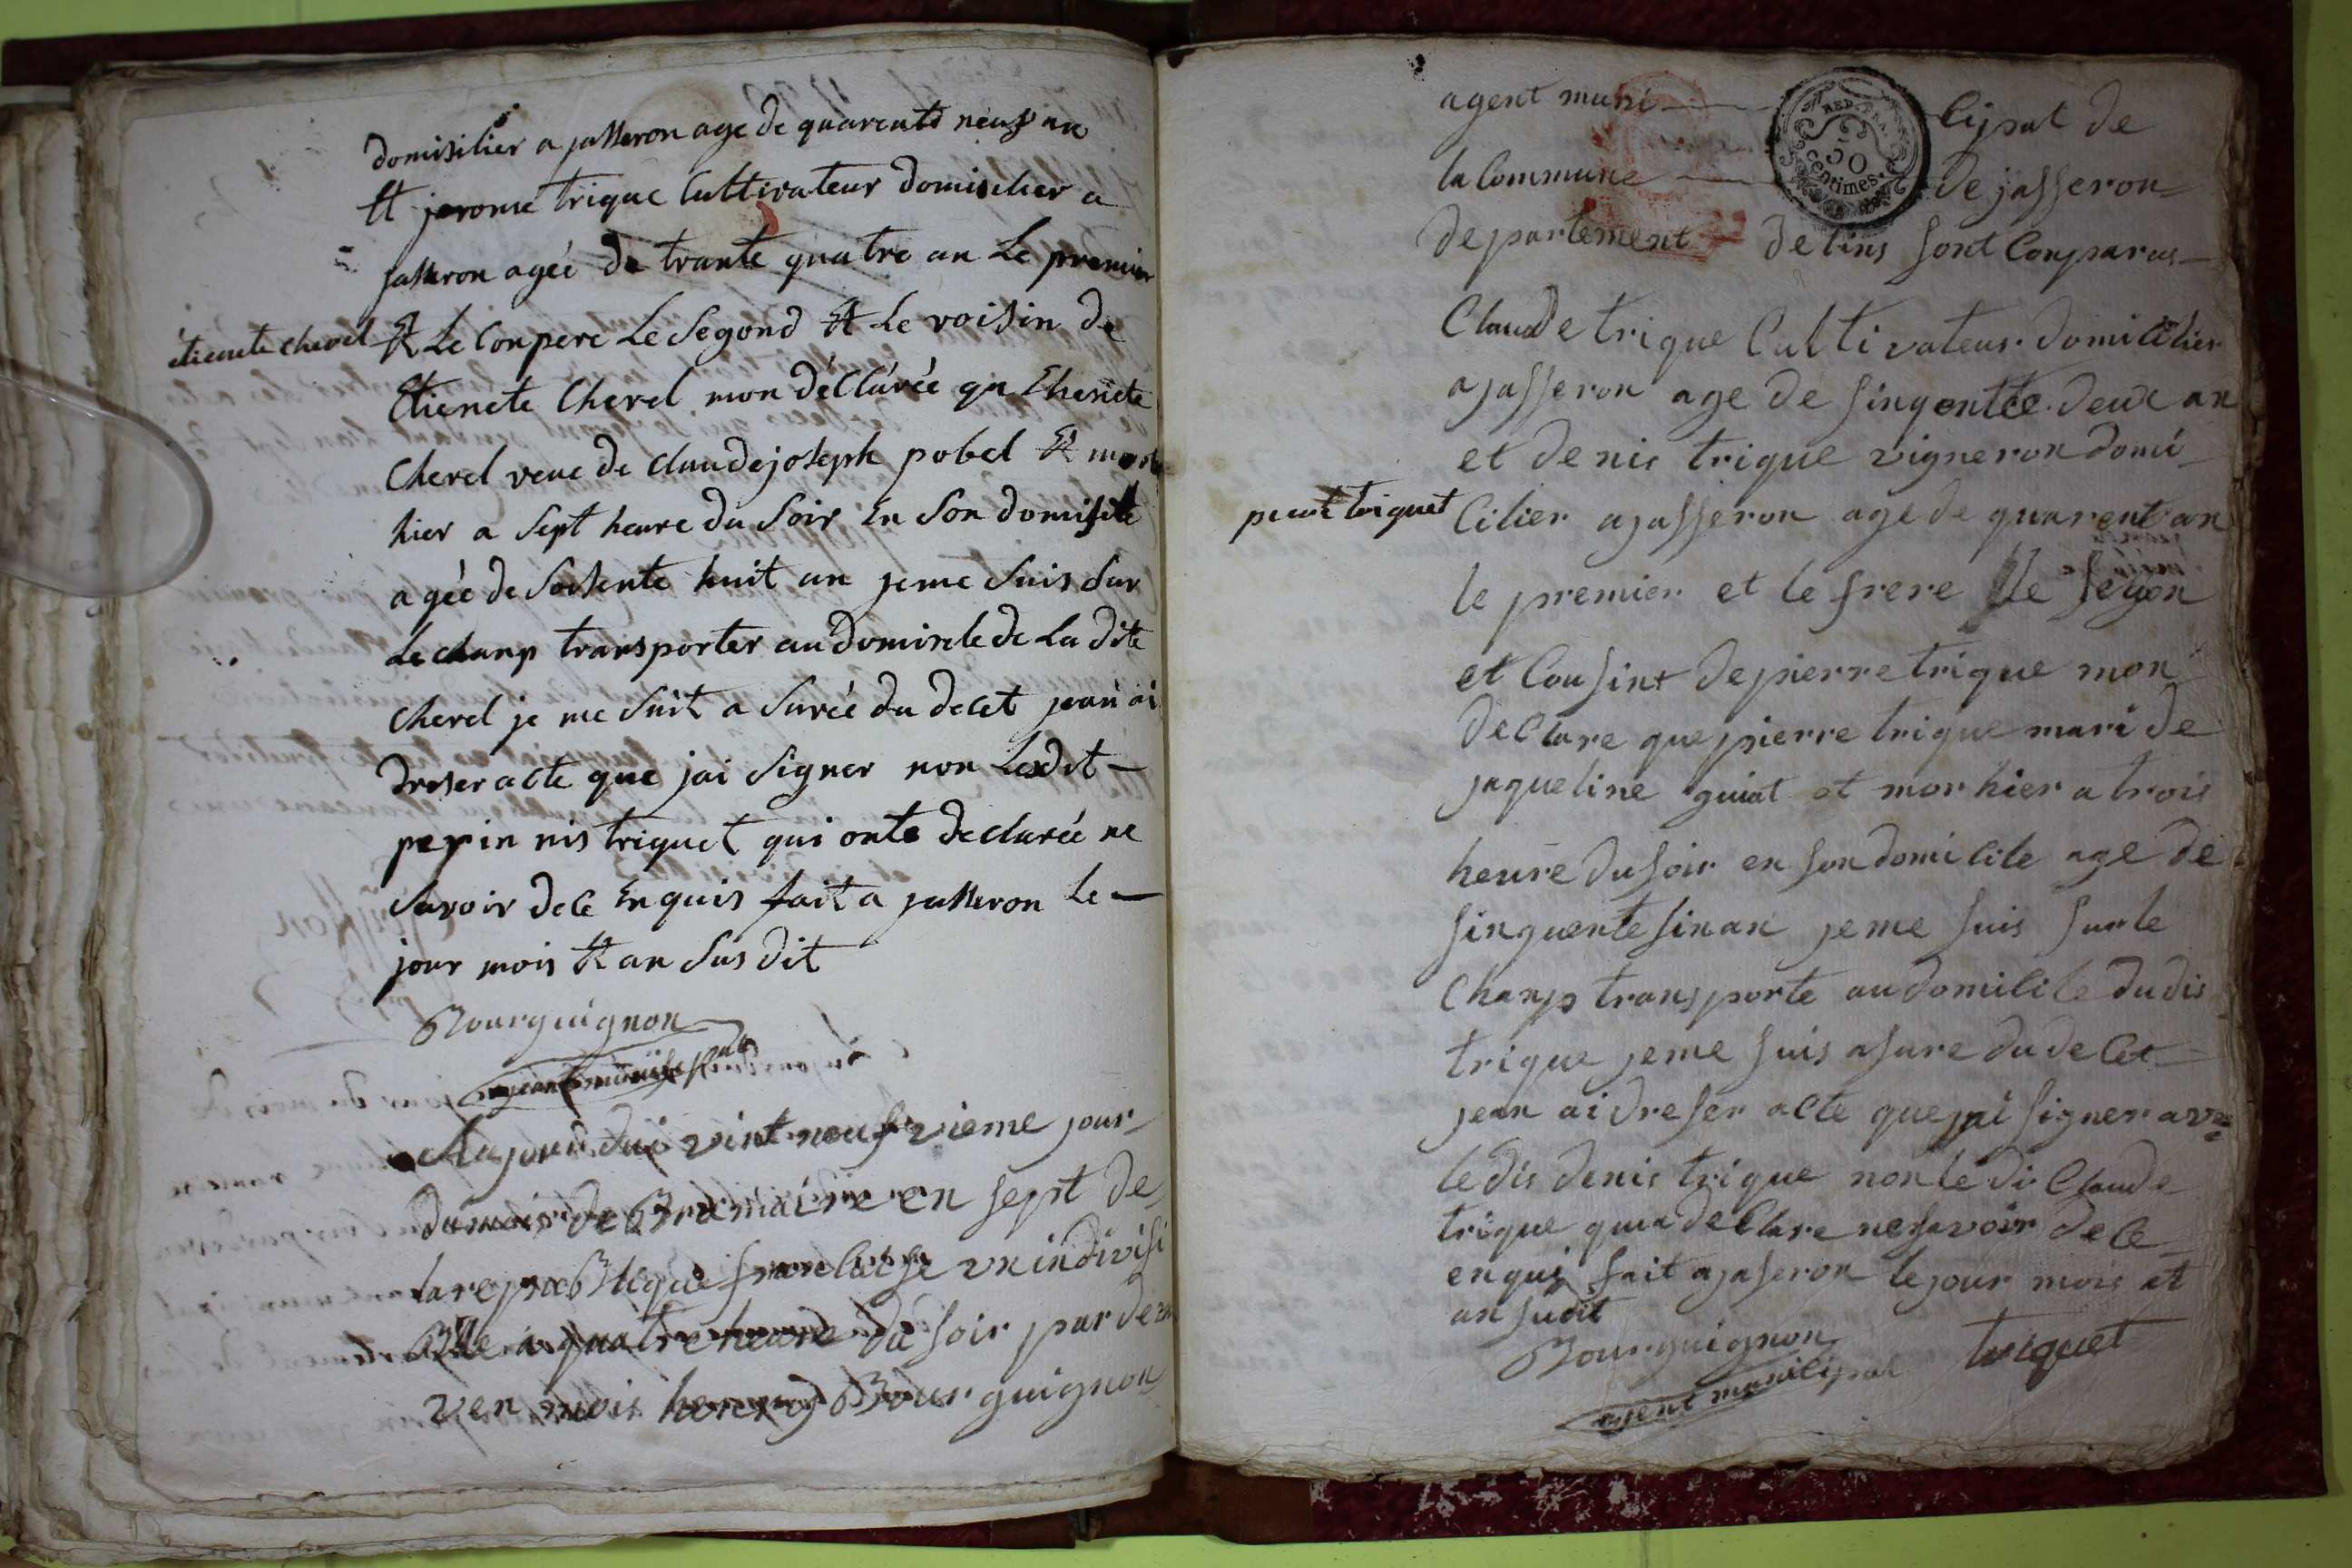 domisilier a jasseron age de quarente neuf an
Et jerome trique Cultivateur domicilier a
jasseron agée de trante quatre an Le premier
étienete cherel
Et Le Conpere Le Segond Et Le voisin de
Etienete Cherel mon déClárée qu Ethenete
Cherel veue de claudejoseph pobel Et morte
hier a Sept heure du Soir En Son domisile
agée de Soisente huit an jeme Suis Sur
Le champ transporter au domisele de La dite
Cherel je me Suit a Surée du decet jean ai
dreser acte que jai Signer non Lesdit
pepin nis triquet qui onte declarée ne
Savoir dece Enquis fait a jasseron Le
jour mois Et an Sus dit
Bourguignon
agent municipal
Aujourdui vint neufvieme jour
du mois de Brumaire en sept de
la repuBlique francaise vn indivisi
Ble a quatre heure du soir par de
ven mois Bourguignon
agent muni cipal de
REP. FRA.
50
centimes.
la Commune de jasseron
departement de lins sont Conparus
Claude trique Cultivateur domicilier
a jasseron age de sinqontee deux an
et denis trique vigneron domi
pierre triquet
cilier a jasseron age de quarent an
le premier et le frere le segon
et Cousint de pierre trique mon
declare que pierre trique mari de
jaqueline guiat et mor hier a trois
heure du soir en son domicile age de
sinquente sin an je me suis sur le
Champ transporte au domicile du dis
trique je me suis asure du decet
jean ai dreser acte que jai signer avec
le dis denis trique non le di Claude
trique qui a declare ne savoir de ce
enqui fait a jaseron le jour mois et
an sudit
Bourguignon triquet
agent municipal